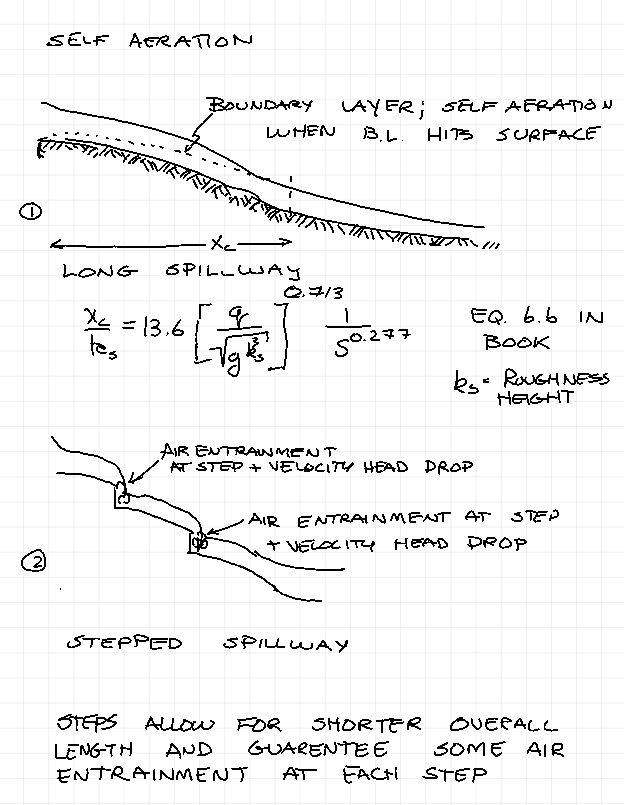 SELF AERATION
BOUNDARY LAYER; SELF AERATION
WHEN B.L. HITS SURFACE
1
x_c
LONG SPILLWAY
x_c/k_s = 13.6 [q/√(g k_s^3)]^0.713 1/S^0.277
EQ. 6.6 IN
BOOK
k_s = ROUGHNESS
HEIGHT
AIR ENTRAINMENT
AT STEP + VELOCITY HEAD DROP
AIR ENTRAINMENT AT STEP
+ VELOCITY HEAD DROP
2
STEPPED SPILLWAY
STEPS ALLOW FOR SHORTER OVERALL
LENGTH AND GUARENTEE SOME AIR
ENTRAINMENT AT EACH STEP